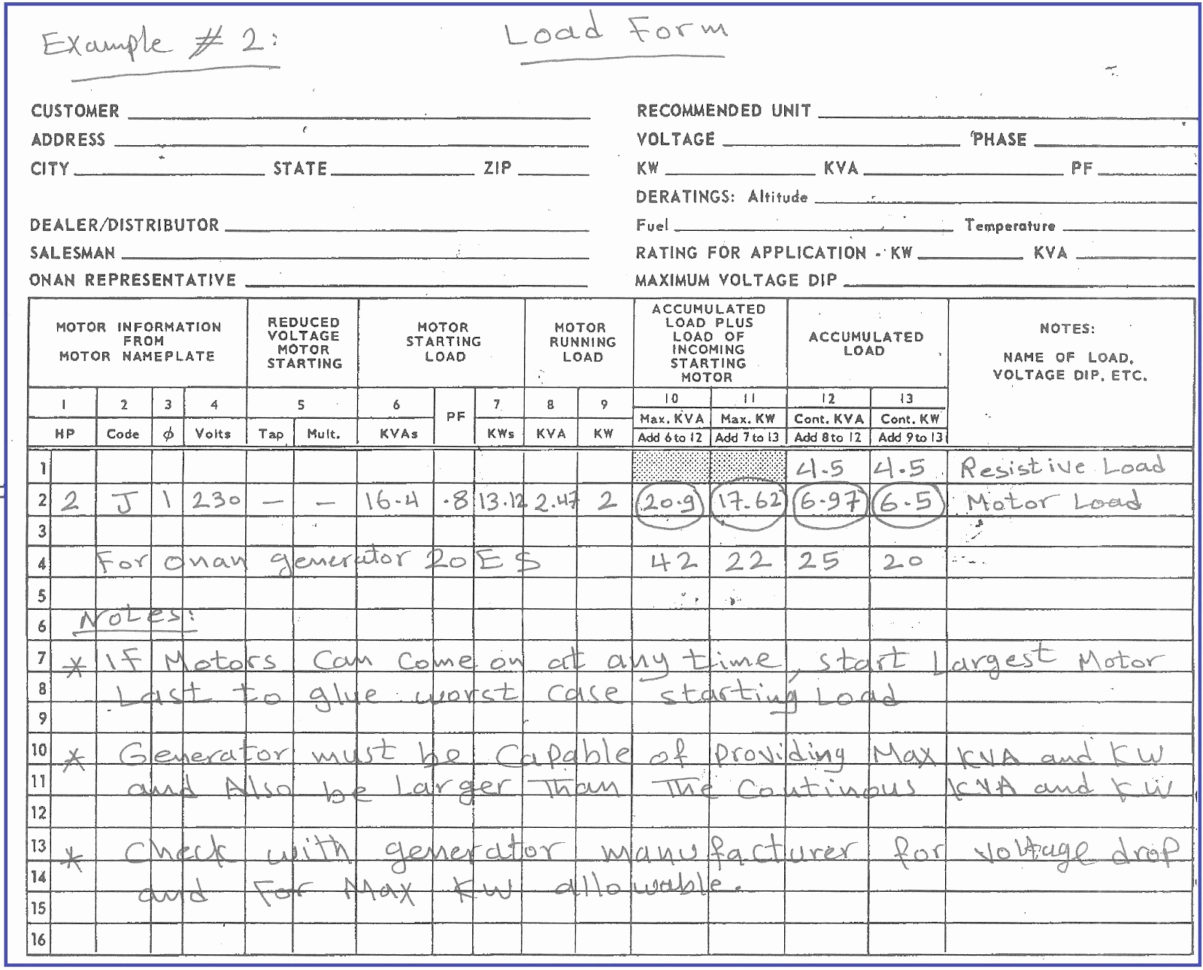 Example # 2: Load Form
CUSTOMER RECOMMENDED UNIT
ADDRESS VOLTAGE PHASE
CITY STATE ZIP KW KVA PF
DERATINGS: Altitude
DEALER/DISTRIBUTOR Fuel Temperature
SALESMAN RATING FOR APPLICATION - KW KVA
ONAN REPRESENTATIVE MAXIMUM VOLTAGE DIP
MOTOR INFORMATION FROM MOTOR NAMEPLATE
REDUCED VOLTAGE MOTOR STARTING
MOTOR STARTING LOAD
MOTOR RUNNING LOAD
ACCUMULATED LOAD PLUS LOAD OF INCOMING STARTING MOTOR
ACCUMULATED LOAD
NOTES: NAME OF LOAD, VOLTAGE DIP, ETC.
1 2 3 4 5 6 PF 7 8 9 10 11 12 13
HP Code ϕ Volts Tap Mult. KVAs KWs KVA KW Max. KVA Max. KW Cont. KVA Cont. KW
Add 6 to 12 Add 7 to 13 Add 8 to 12 Add 9 to 13
1 4.5 4.5 Resistive Load
2 2 J 1 230 — — 16.4 .8 13.12 2.47 2 20.9 17.62 6.97 6.5 Motor Load
3
4 For onan generator 20ES 42 22 25 20
5
6 Notes:
7 * If Motors Can Come on at any time, start Largest Motor
8 Last to give worst case starting Load
9
10 * Generator must be Capable of Providing Max KVA and KW
11 and Also be Larger Than The Continous KVA and KW
12
13 * Check with generator manufacturer for voltage drop
14 and For Max KW allowable.
15
16